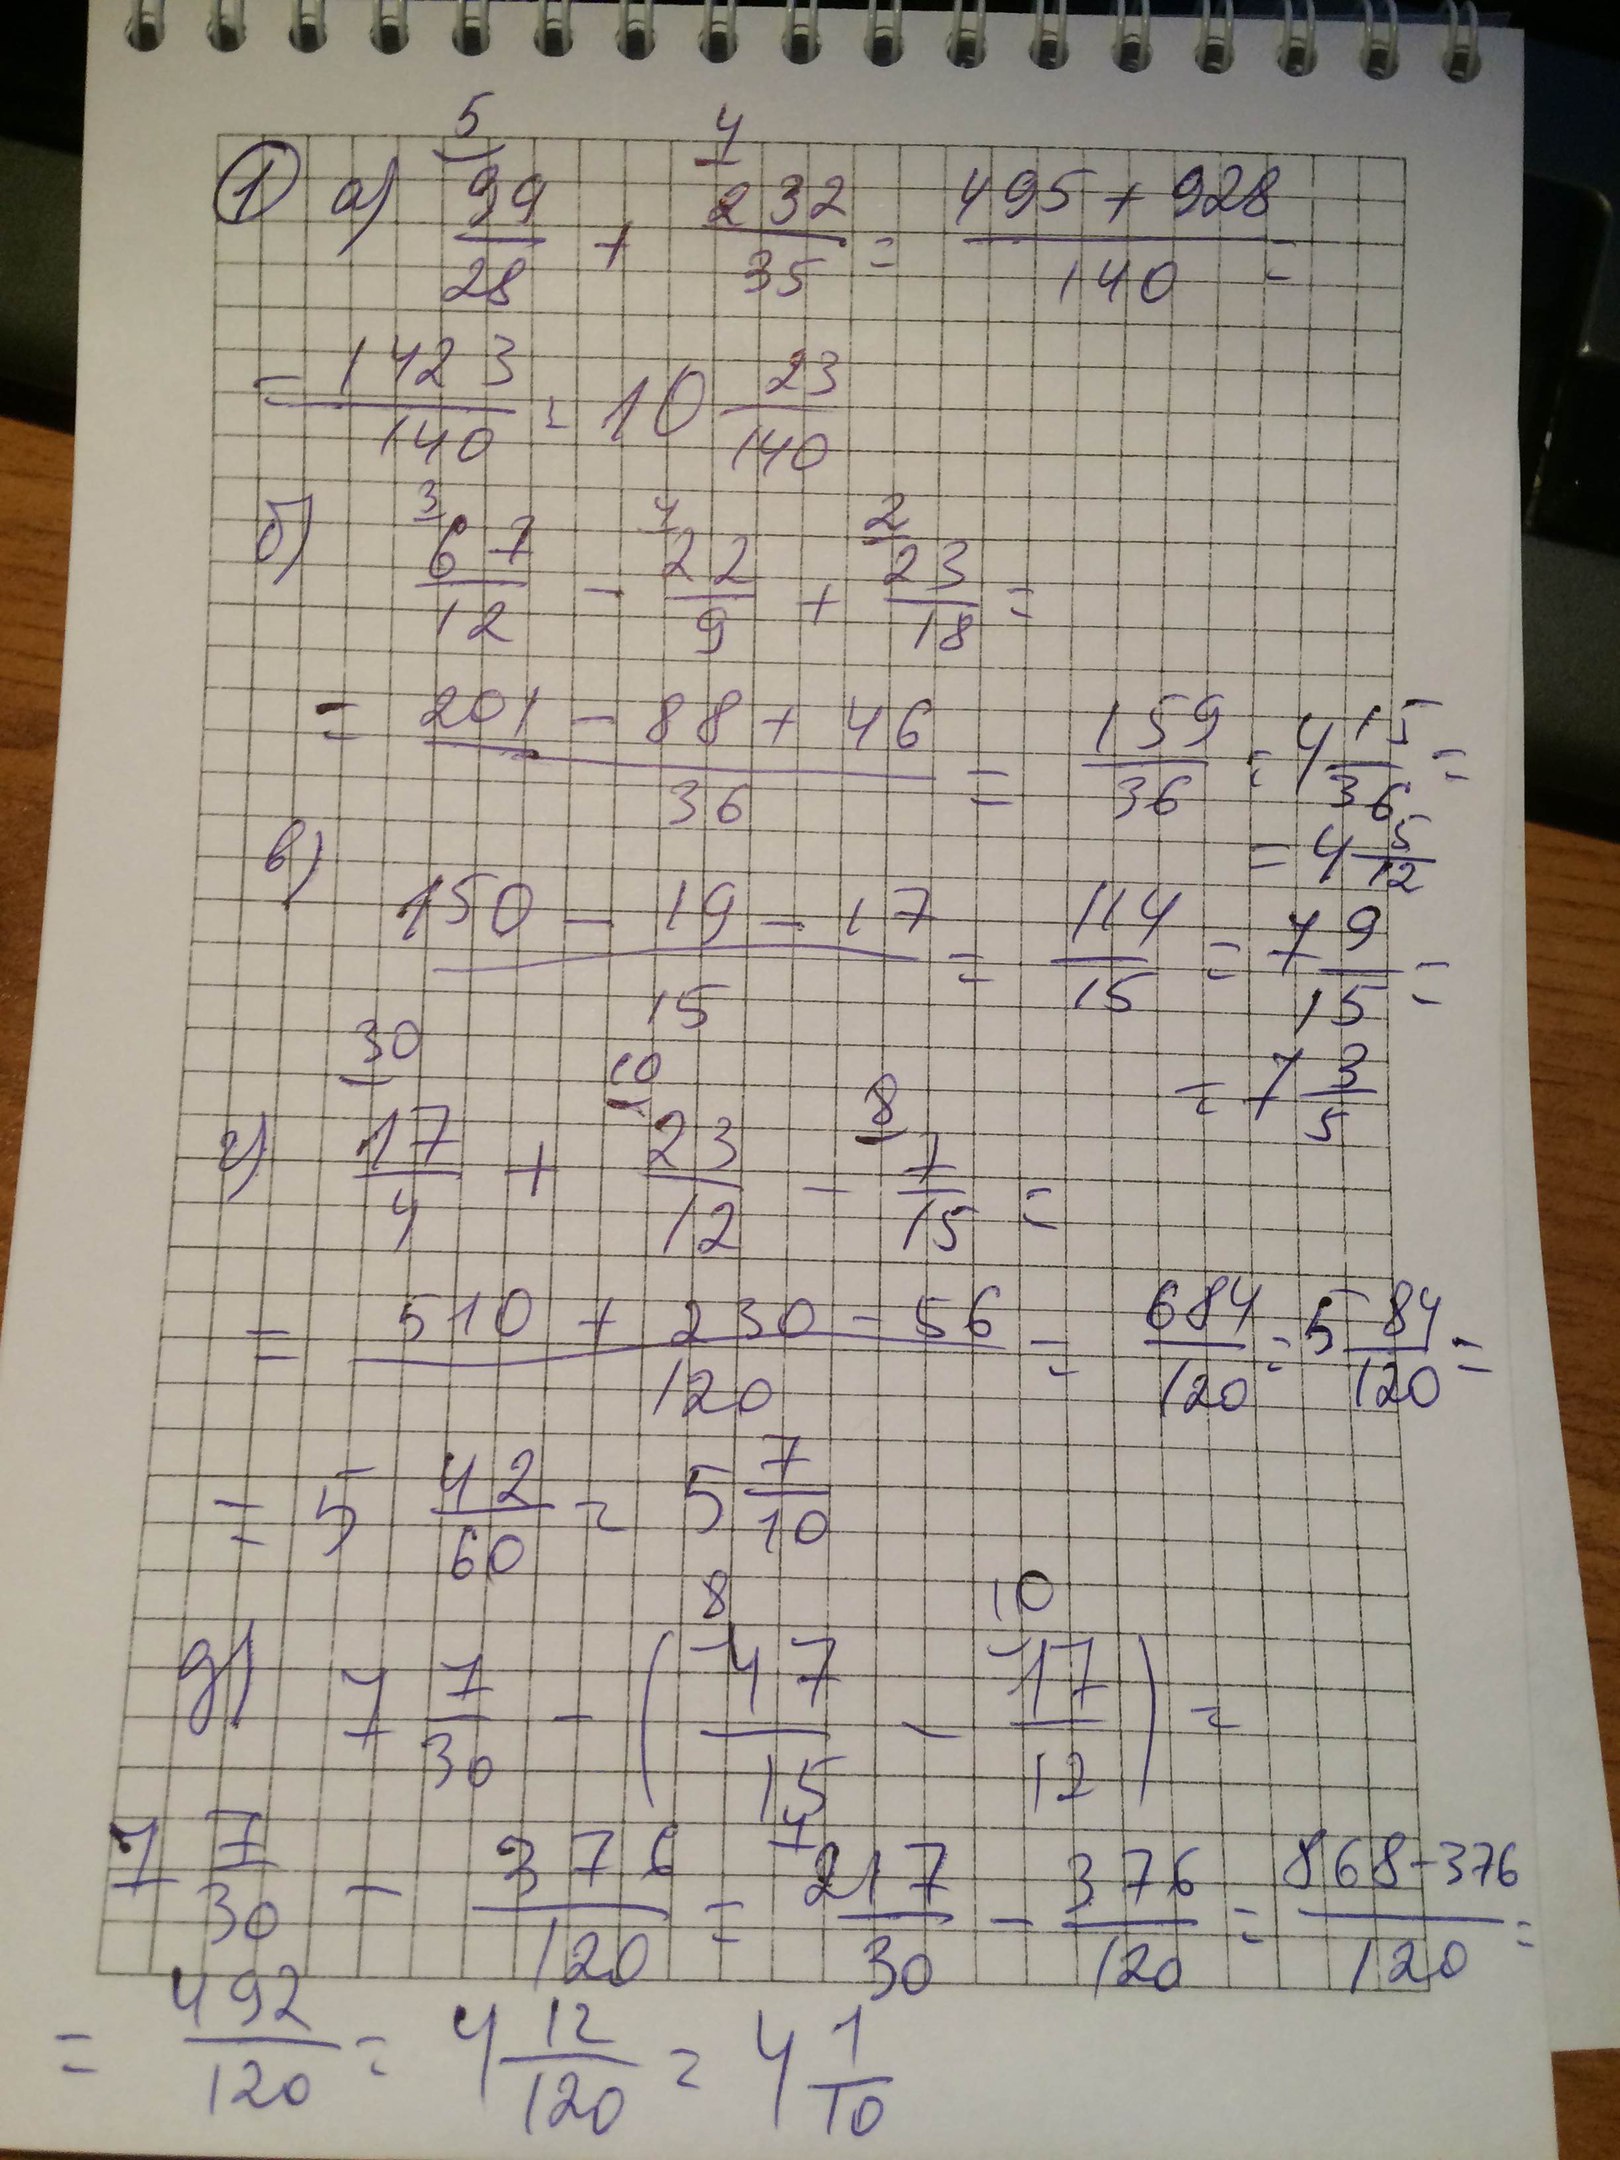 ① а) 99/28 (5) + 232/35 (4) = (495 + 928)/140 =
= 1423/140 = 10 23/140
б) 67/12 (3) - 22/9 (4) + 23/18 (2) =
= (201 - 88 + 46)/36 = 159/36 = 4 15/36 =
= 4 5/12
в) (150 - 19 - 17)/15 = 114/15 = 7 9/15 =
= 7 3/5
г) 17/4 (30) + 23/12 (10) - 7/15 (8) =
= (510 + 230 - 56)/120 = 684/120 = 5 84/120 =
= 5 42/60 = 5 7/10
д) 7 7/30 - (47/15 (8) - 17/12 (10)) =
7 7/30 - 376/120 = 217/30 (4) - 376/120 = (868 - 376)/120 =
= 492/120 = 4 12/120 = 4 1/10